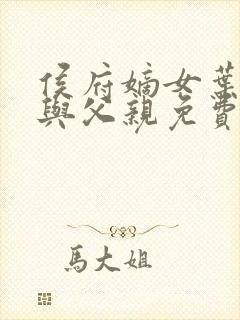 侯府嫡女葉
與父親免費
馬大姐